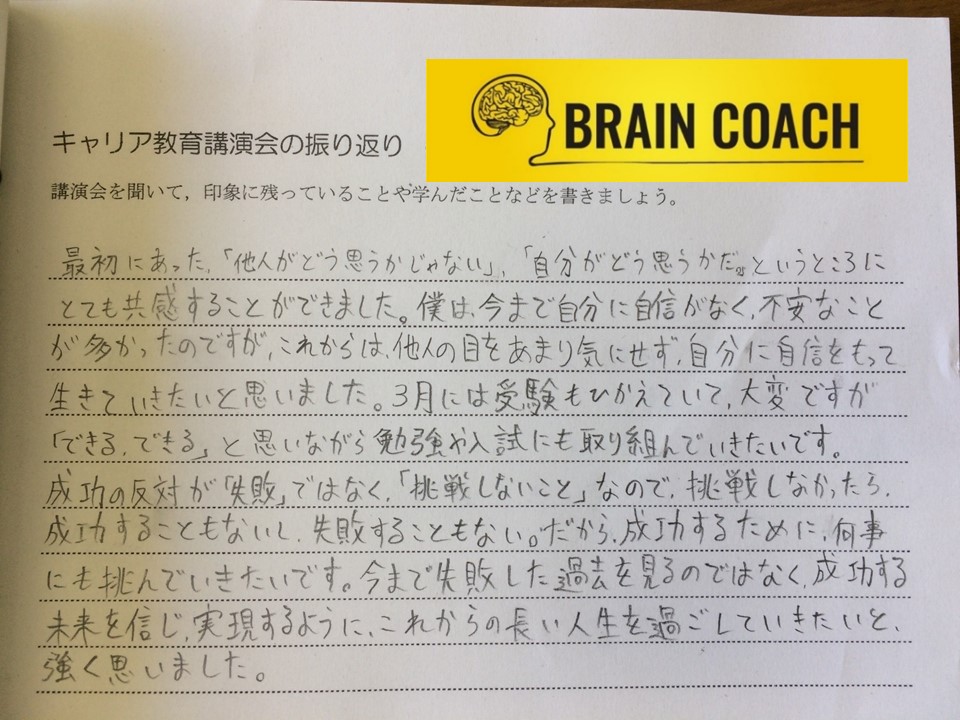 BRAIN COACH
キャリア教育講演会の振り返り
講演会を聞いて，印象に残っていることや学んだことなどを書きましょう。
最初にあった、「他人がどう思うかじゃない」、「自分がどう思うかだ。」というところに
とても共感することができました。僕は、今まで自分に自信がなく、不安なこと
が多かったのですが、これからは、他人の目をあまり気にせず、自分に自信をもって
生きていきたいと思いました。3月には受験もひかえていて、大変ですが
「できる、できる」と思いながら勉強や入試にも取り組んでいきたいです。
成功の反対が「失敗」ではなく、「挑戦しないこと」なので、挑戦しなかったら、
成功することもないし、失敗することもない。だから、成功するために、何事
にも挑んでいきたいです。今まで失敗した過去を見るのではなく、成功する
未来を信じ、実現するように、これからの長い人生を過ごしていきたいと、
強く思いました。